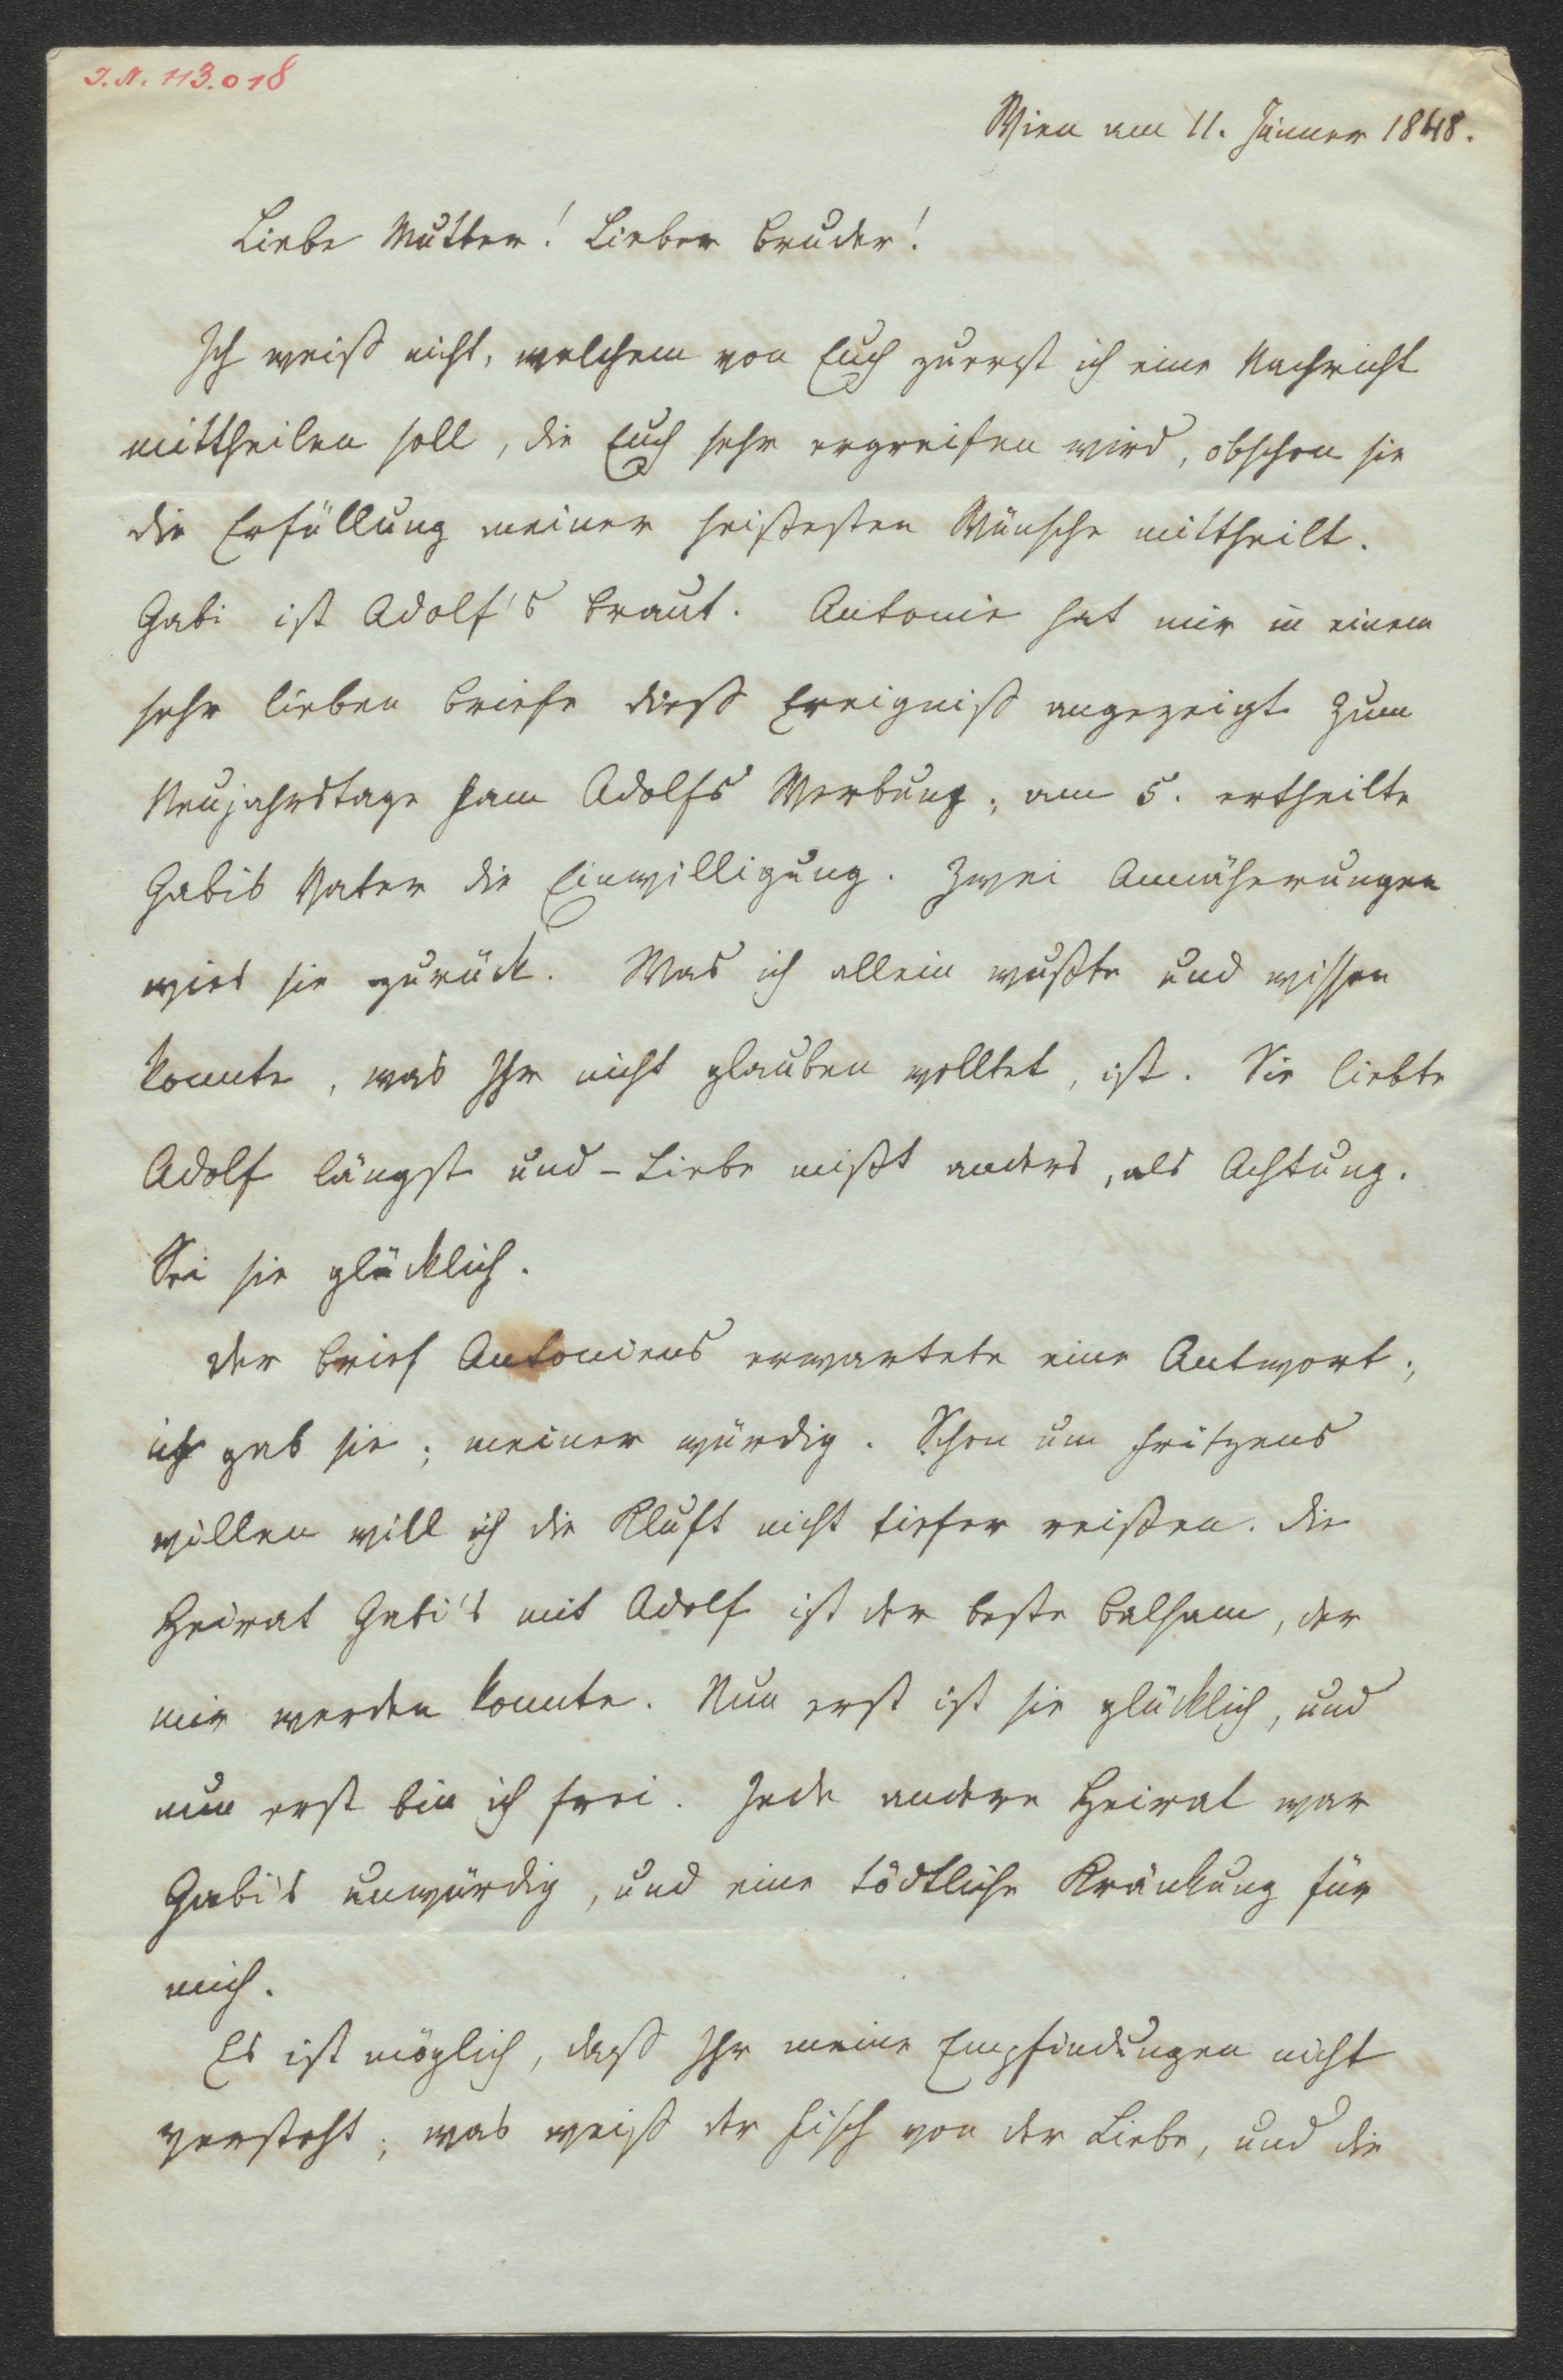 I.N. 113.018
Wien am 11. Jänner 1848.
Liebe Mutter! Lieber Bruder!
Ich weiß nicht, welchem von Euch zuerst ich eine Nachricht
mittheilen soll, die Euch sehr ergreifen wird, obschon sie
die Erfüllung meiner heißesten Wünsche mittheilt.
Gabi ist Adolf's Braut. Antonie hat mir in einem
sehr lieben Briefe dieß Ereigniß angezeigt. Zum
Neujahrstage kam Adolfs Werbung; am 5. ertheilte
Gabis Vater die Einwilligung. Zwei Annäherungen
wies sie zurück. Was ich allein wußte und wissen
konnte, was Ihr nicht glauben wolltet, ist. Sie liebte
Adolf längst und – Liebe mißt anders, als Achtung.
Sei sie glücklich.
Der Brief Antoniens erwartete eine Antwort;
ich gab sie; meiner würdig. Schon um Fritzens
willen will ich die Kluft nicht tiefer reißen. Die
Heirat Gabi's mit Adolf ist der beste Balsam, der
mir werden konnte. Nun erst ist sie glücklich, und
nun erst bin ich frei. Jede andere Heirat war
Gabi's unwürdig, und eine tödtliche Kränkung für
mich.
Es ist möglich, daß Ihr meine Empfindungen nicht
versteht; was weiß der Fisch von der Liebe, und die